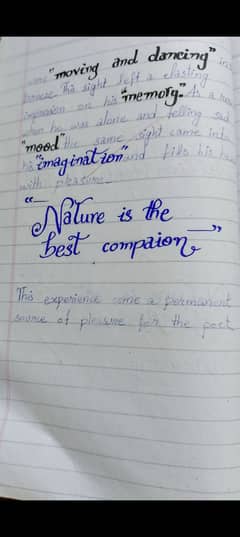 "moving and dancing" in
breeze. This sight left a elasting
impression on his "memory". As a
when he was alone and felling sad
"mood" the same sight came into
his "imagination" and fills his
with pleasure.
"Nature is the
best compaion"
This experience come a permanent
source of pleasure for the poet